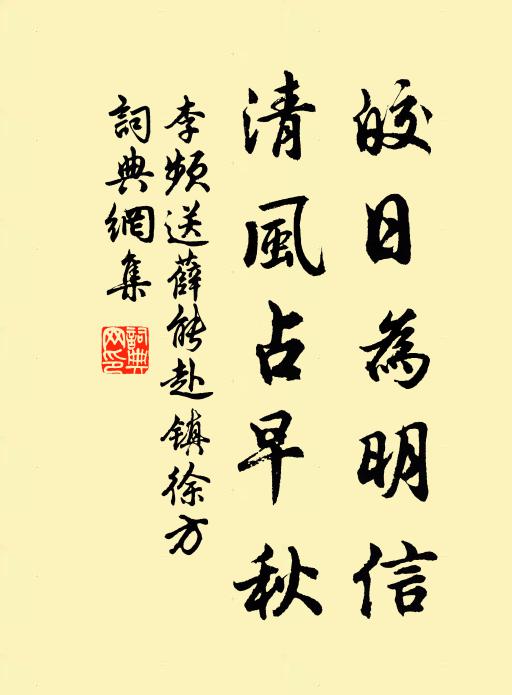 皎日為明信
清風占早秋
李頻送薛能赴鎮徐方
詞典網集
詞典網印